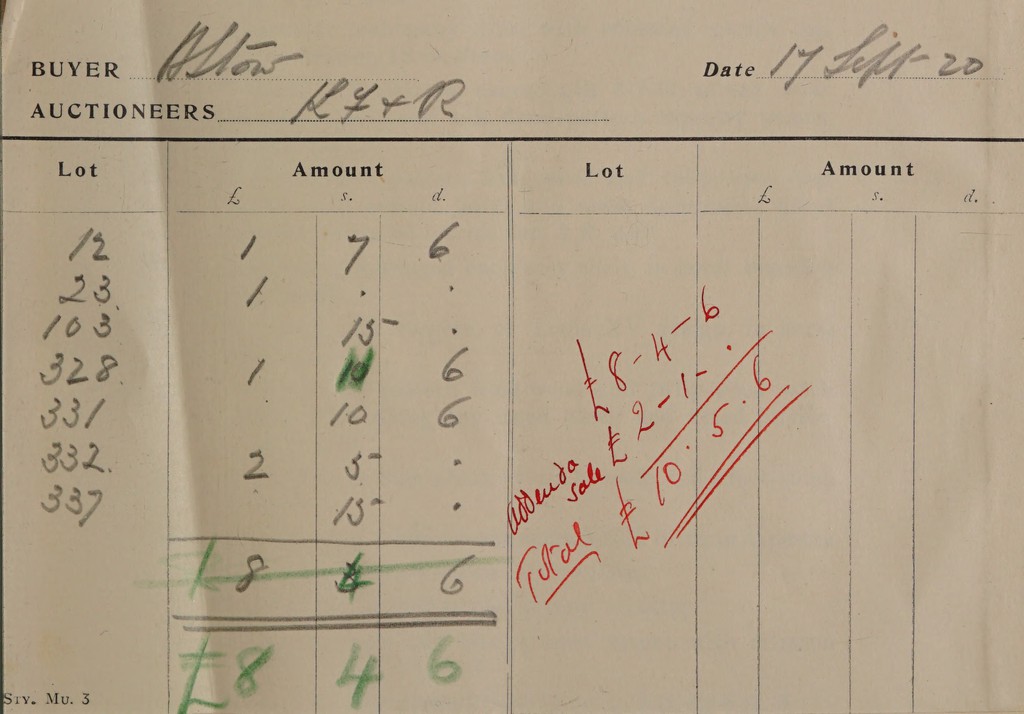 BUYER
Date 17 Sept 20
AUCTIONEERS K F & R
Lot Amount Lot Amount
£ s. d. £ s. d.
12 1 7 6
23 1 . .
103 15 .
328. 1 11 6
331 10 6
332. 2 5 .
337 15 .
£ 8 4 6
£ 8 4 6
£ 8 - 4 - 6
addenda sale £ 2 - 1 - .
Total £ 10 . 5 . 6
STY. MU. 3